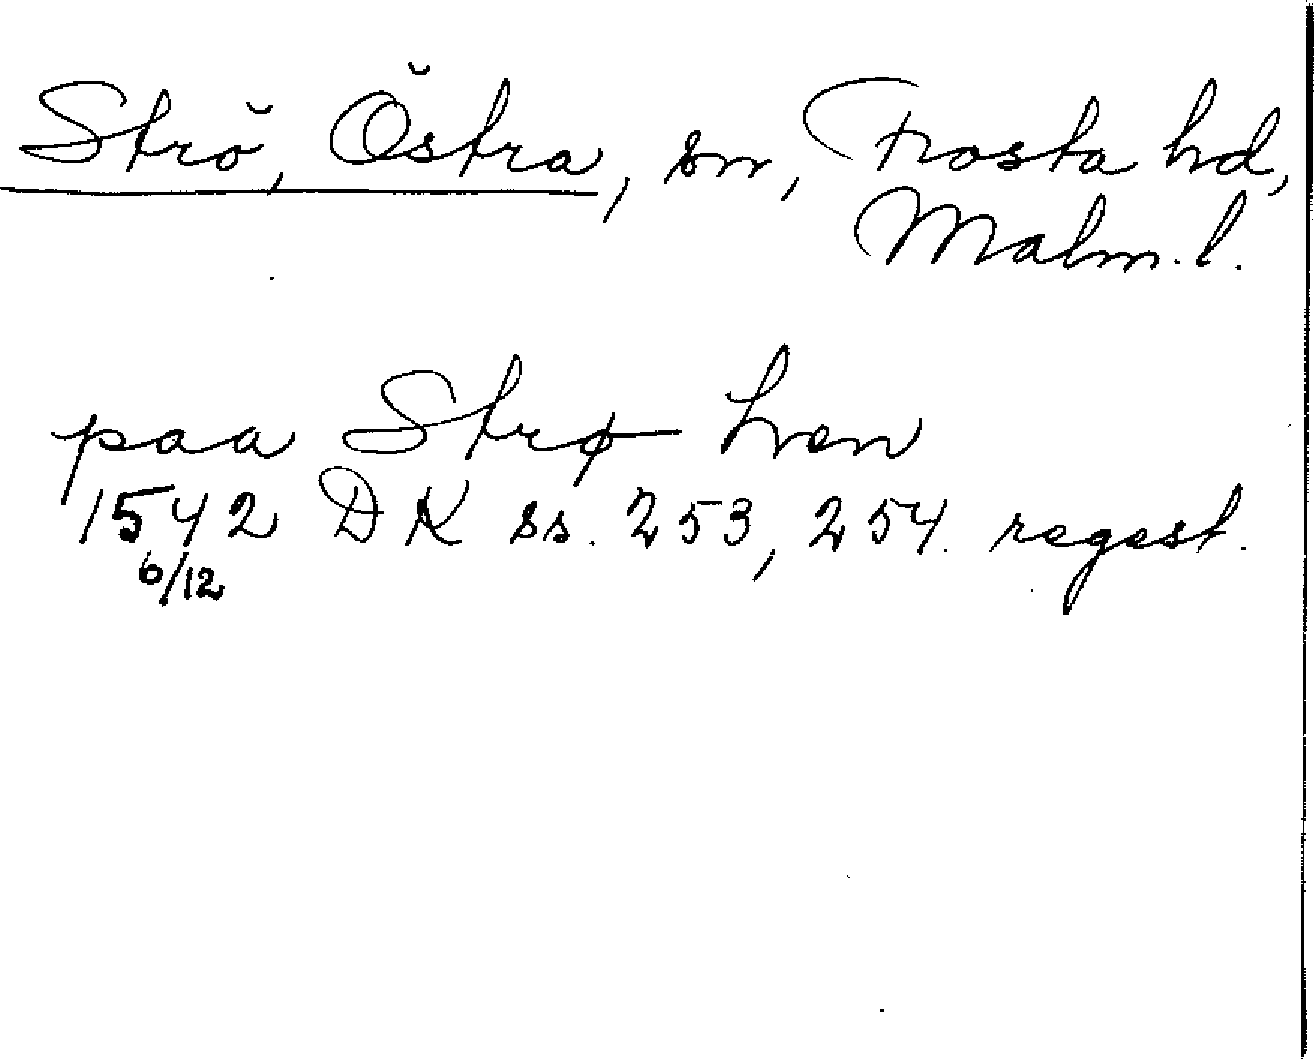 Strö, Östra, sn, Frosta hd,
Malm. l.
paa Strø hven
1542 DK ss. 253, 254. regest.
6/12